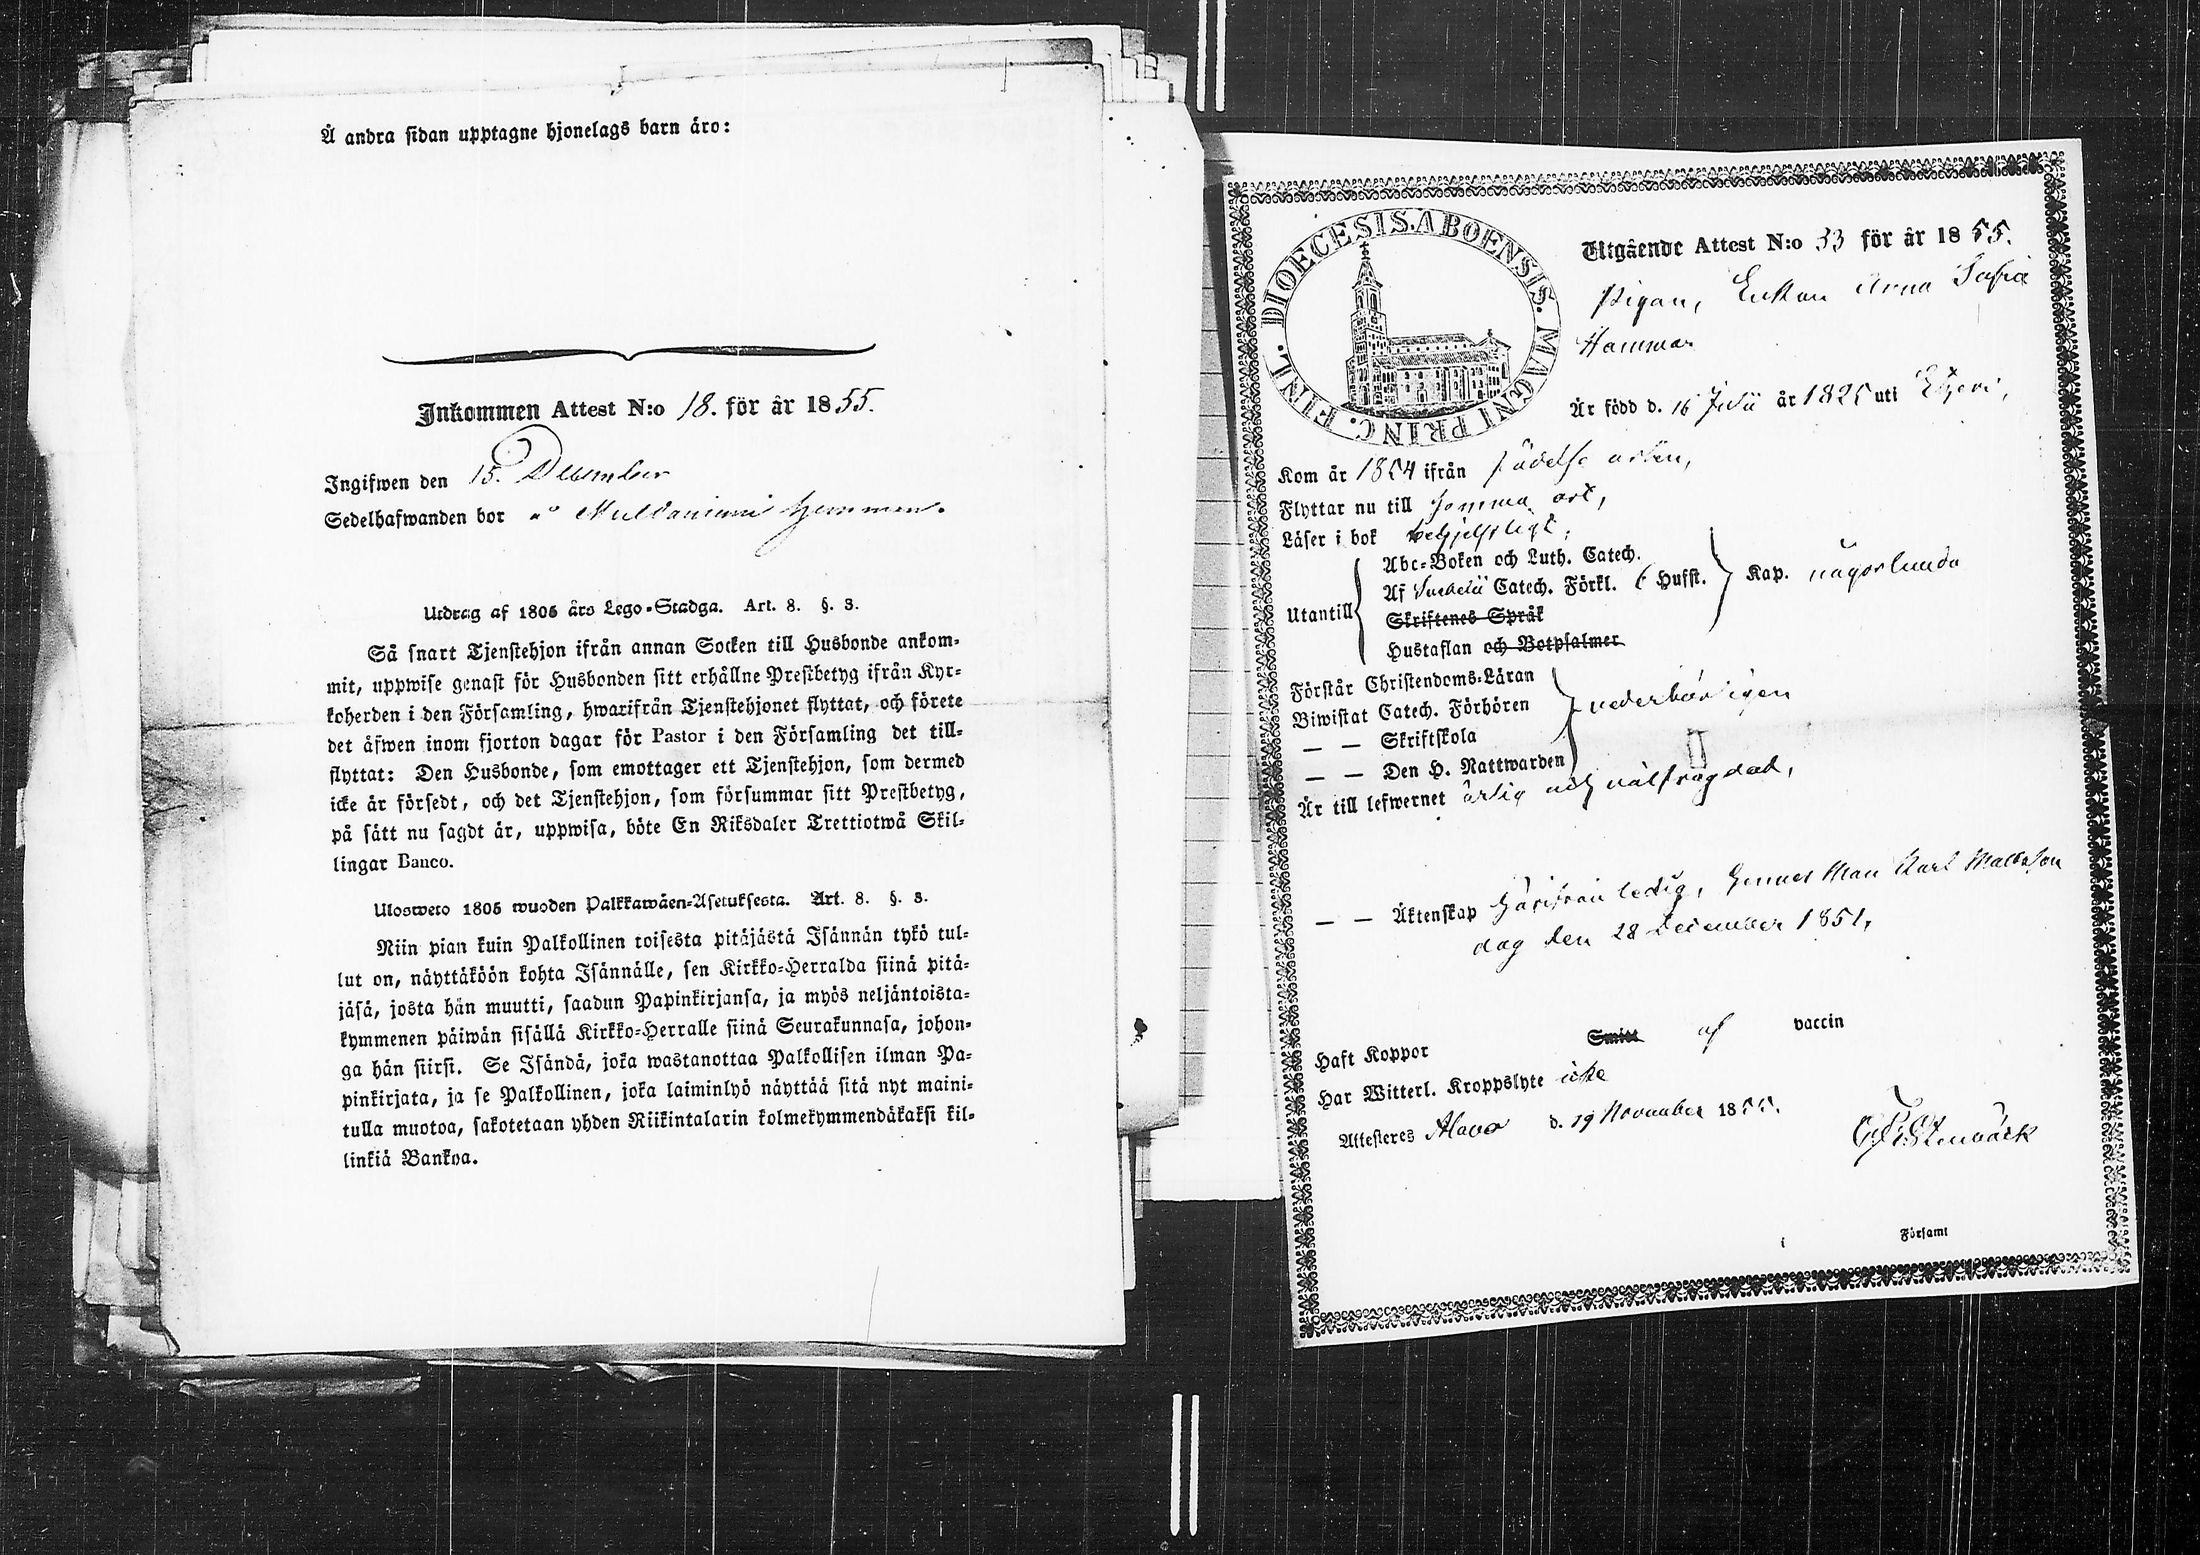 Å andra sidan upptagne hjonelags barn äro:
Inkommen Attest N:o 18. för år 1855.
Ingifwen den 15. December
Sedelhafwanden bor å hemman.
Utdrag af 1805 års Lego-Stadga. Art. 8. §. 3.
Så snart Tjenstehjon ifrån annan Socken till Husbonde ankom-
mit, uppwise genast för Husbonden sitt erhållne Prestbetyg ifrån Kyr-
koherden i den Församling, hwarifrån Tjenstehjonet flyttat, och förete
det äfwen inom fjorton dagar för Pastor i den Församling det till-
flyttat: Den Husbonde, som emottager ett Tjenstehjon, som dermed
icke är försedt, och det Tjenstehjon, som försummar sitt Prestbetyg,
på sätt nu sagdt är, uppwisa, böte En Riksdaler Trettiotwå Skil-
lingar Banco.
Ulosweto 1805 wuoden Palkkawäen-Asetuksesta. Art. 8. §. 3.
Niin pian kuin Palkollinen toisesta pitäjästä Isännän tykö tul-
lut on, näyttäköön kohta Isännälle, sen Kirkko-Herralda siinä pitä-
jäsä, josta hän muutti, saadun Papinkirjansa, ja myös neljäntoista-
kymmenen päiwän sisällä Kirkko-Herralle siinä Seurakunnasa, johon-
ga hän siirsi. Se Isändä, joka wastanottaa Palkollisen ilman Pa-
pinkirjata, ja se Palkollinen, joka laiminlyö näyttää sitä nyt maini-
tulla muotoa, sakotetaan yhden Riikintalarin kolmekymmendäkaksi kil-
linkiä Bankoa.
DIOECESIS. ABOENSIS. MAGNI PRINC. FINL.
Utgående Attest N:o 33 för år 1855.
Pigan, Enkan Anna Sofia
Hammar
Är född d. 16 Julii år 1825 uti Etseri,
Kom år 1854 ifrån födelse orten,
Flyttar nu till samma ort,
Läser i bok behjelpligt,
Abc-Boken och Luth. Catech.
Af Svebelii Catech. Förkl. 6 Hufst. Kap. någorlunda
Utantill
Skriftenes Språk
Hustaflan och Botpsalmer
Förstår Christendoms-Läran
Biwistat Catech. Förhören vederbörligen
— — Skriftskola
— — Den H. Nattwarden
Är till lefwernet ärlig och välfrägdad,
— — Äktenskap härifrån ledig, hennes Man Karl Mattsson
dog den 28 December 1851,
Haft Koppor Smitt af vaccin
Har Witterl. Kroppslyte icke
Attesteres Alavo d. 19 November 1855.
Stenbäck
i Församl